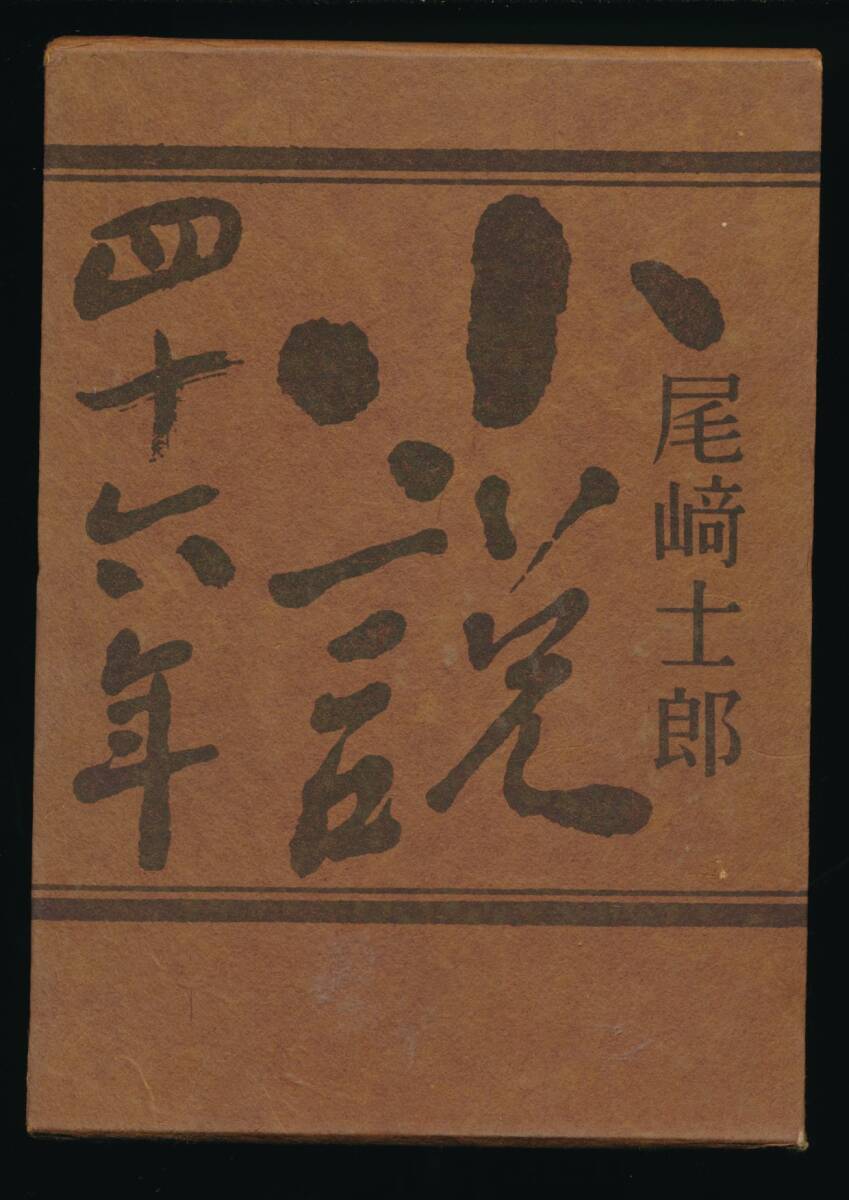 尾﨑士郎
小説
四十六年